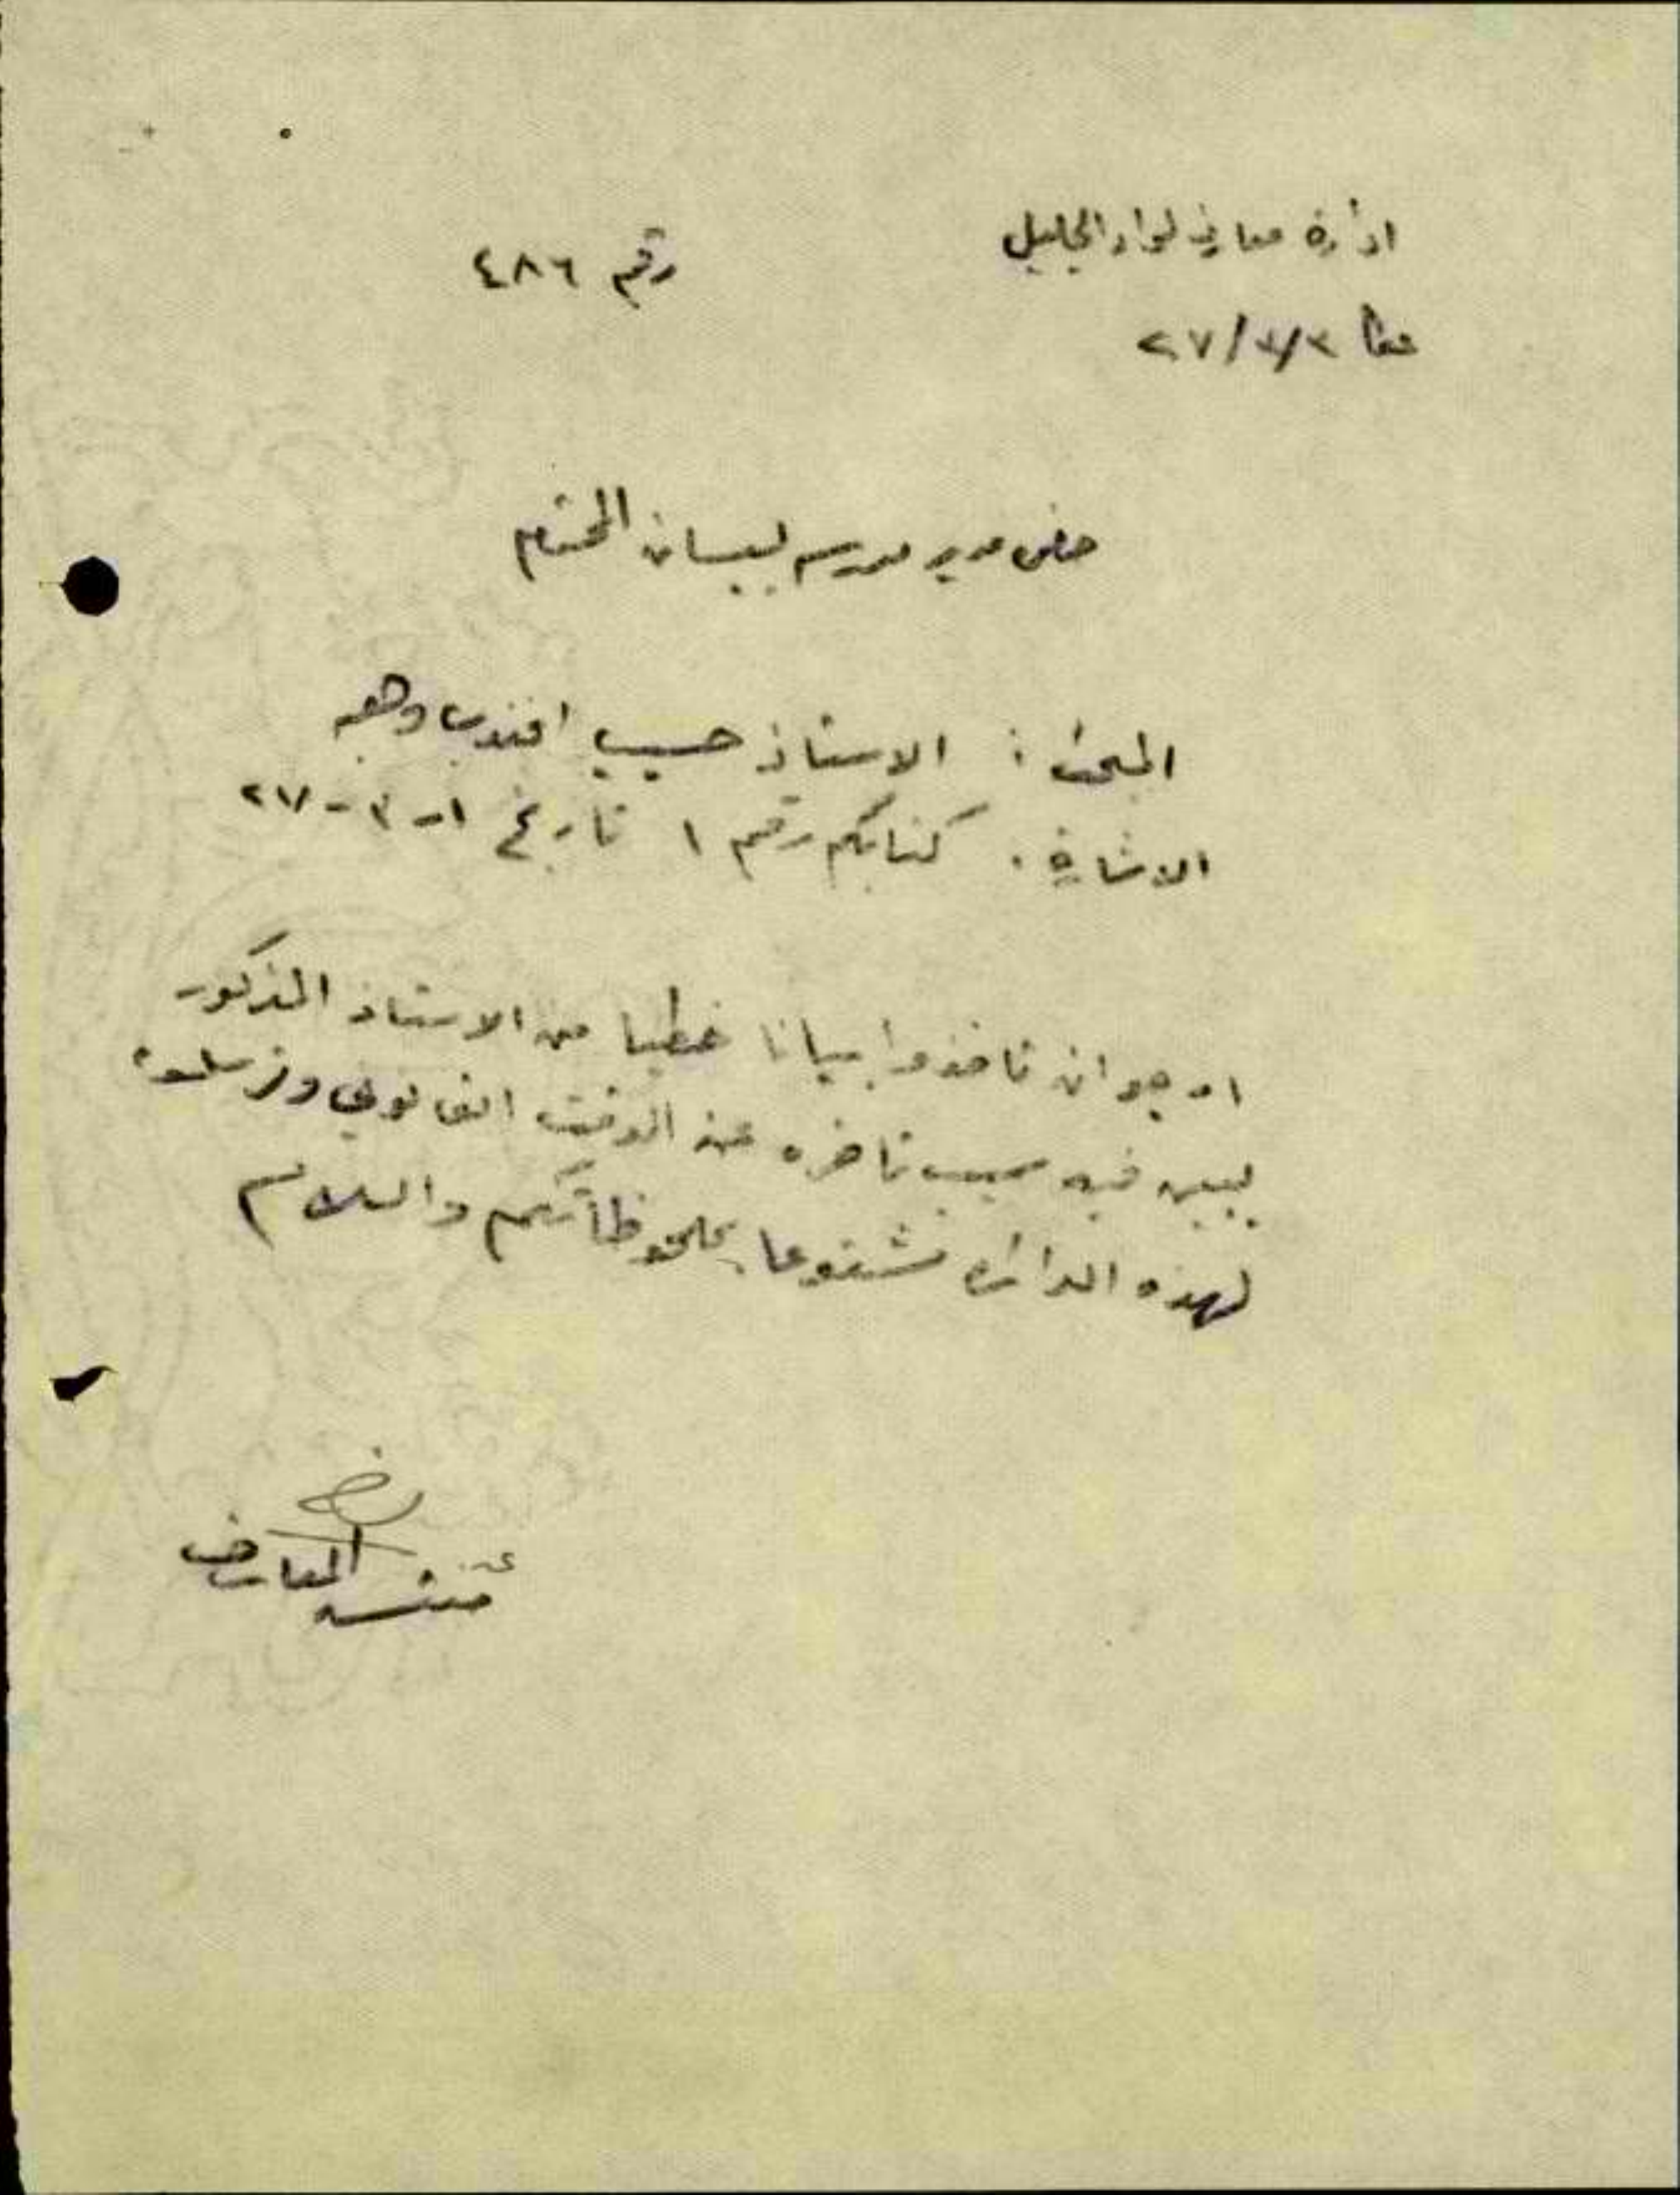 ادارة معارف لواء الجليل
رقم ٤٨٦
عكا ٢/٣/٢٧
حضرة مدير مدرسة بيسان المحترم
المبحث : الاستاذ حسيب افندي وهبه
الاشارة . كتابكم رقم ١ تاريخ ١-٣-٢٧
ارجو ان تاخذوا بيانا خطيا من الاستاذ المذكور
يبين فيه سبب تاخره عن الوقت القانوني وترسلوه
لهذه الدائرة مشفوعا بملحوظاتكم والسلام
مفتش المعارف